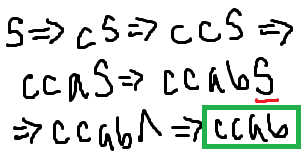 S⇒cS⇒ccS⇒
ccaS⇒ccabS
⇒ccabΛ⇒ccab